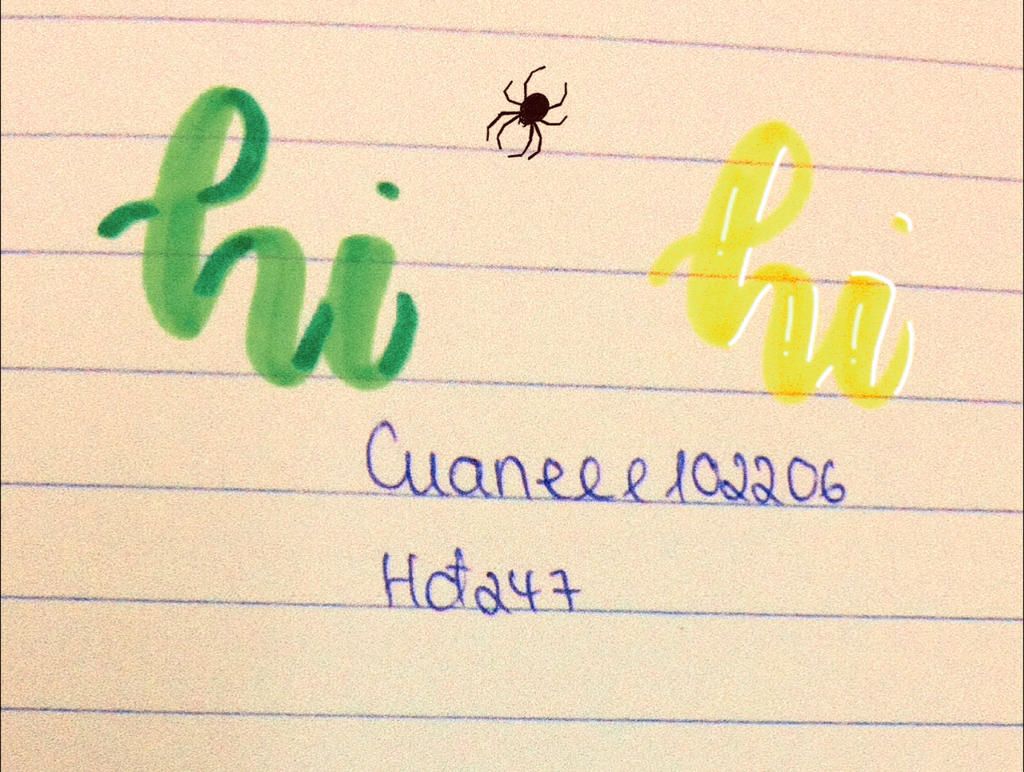 hi hi
Cuaneee102206
Hot247